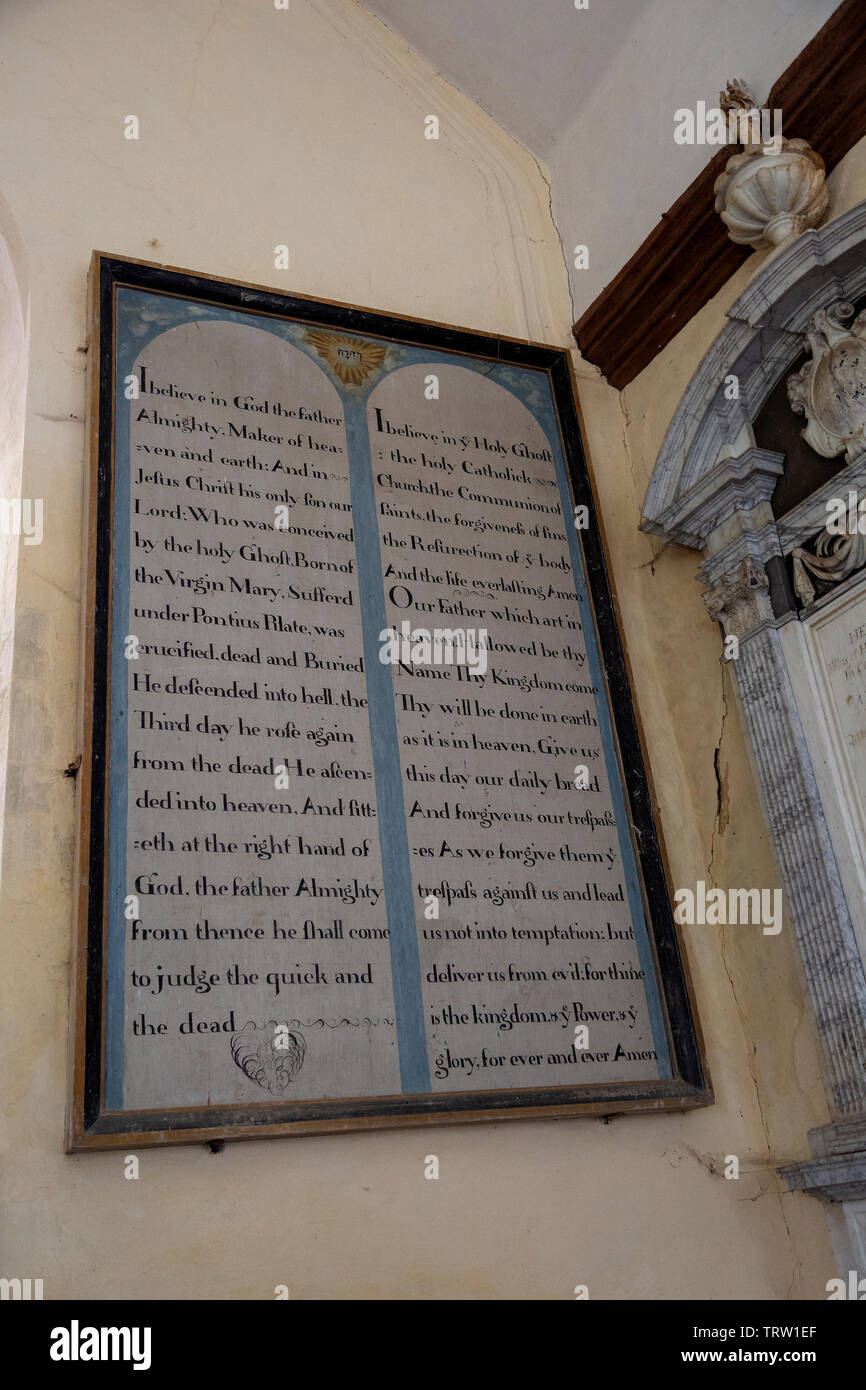 I believe in God the father
Almighty, Maker of hea=
=ven and earth: And in
Jeſus Chriſt his only ſon our
Lord: Who was conceived
by the holy Ghoſt, Born of
the Virgin Mary, Sufferd
under Pontius Pilate, was
crucified, dead and Buried
He deſcended into hell, the
Third day he roſe again
from the dead He aſcen=
ded into heaven, And ſitt=
=eth at the right hand of
God, the father Almighty
from thence he ſhall come
to judge the quick and
the dead
יהוה
I believe in yͤ Holy Ghoſt
: the holy Catholick
Church, the Communion of
ſaints, the forgiveneſs of ſins
the Reſurection of yͤ body
And the life everlaſting Amen
Our Father which art in
heaven, Hallowed be thy
Name Thy Kingdom come
Thy will be done in earth
as it is in heaven, Give us
this day our daily bread.
And forgive us our treſpaſs=
=es As we forgive them yͭ
treſpaſs againſt us and lead
us not into temptation: but
deliver us from evil: for thine
is the kingdom, & yͤ Power, & yͤ
glory, for ever and ever Amen
alamy
Image ID: TRW1EF
www.alamy.com